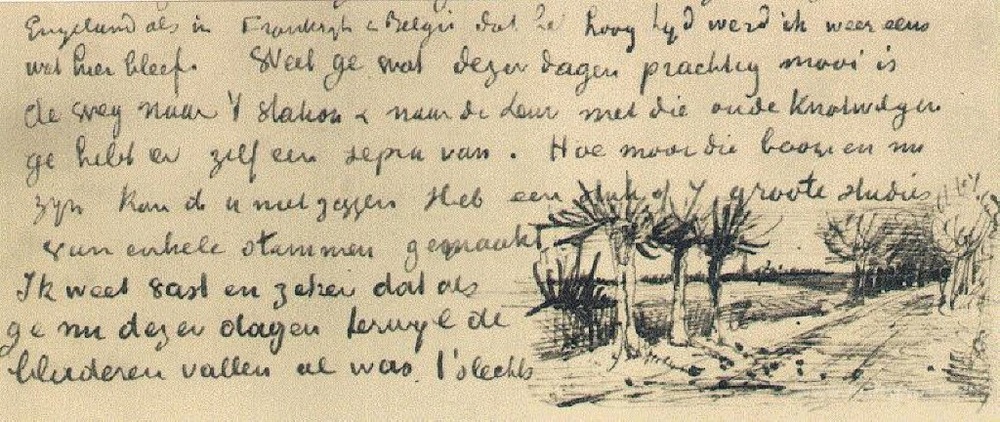 Engeland als in Frankryk & Belgie dat ze hoog tyd werd ik weer eens
wat hier bleef. Weet ge wat dezer dagen prachtig mooi is
de weg naar 't station & naar de Leur met die oude knotwilgen
ge hebt er zelf een sepia van. Hoe mooi die boomen nu
zyn kan ik u niet zeggen Heb een stuk of 7 groote studies
van enkele stammen gemaakt
Ik weet vast en zeker dat als
ge nu dezer dagen terwyl de
bladeren vallen al was 't slechts